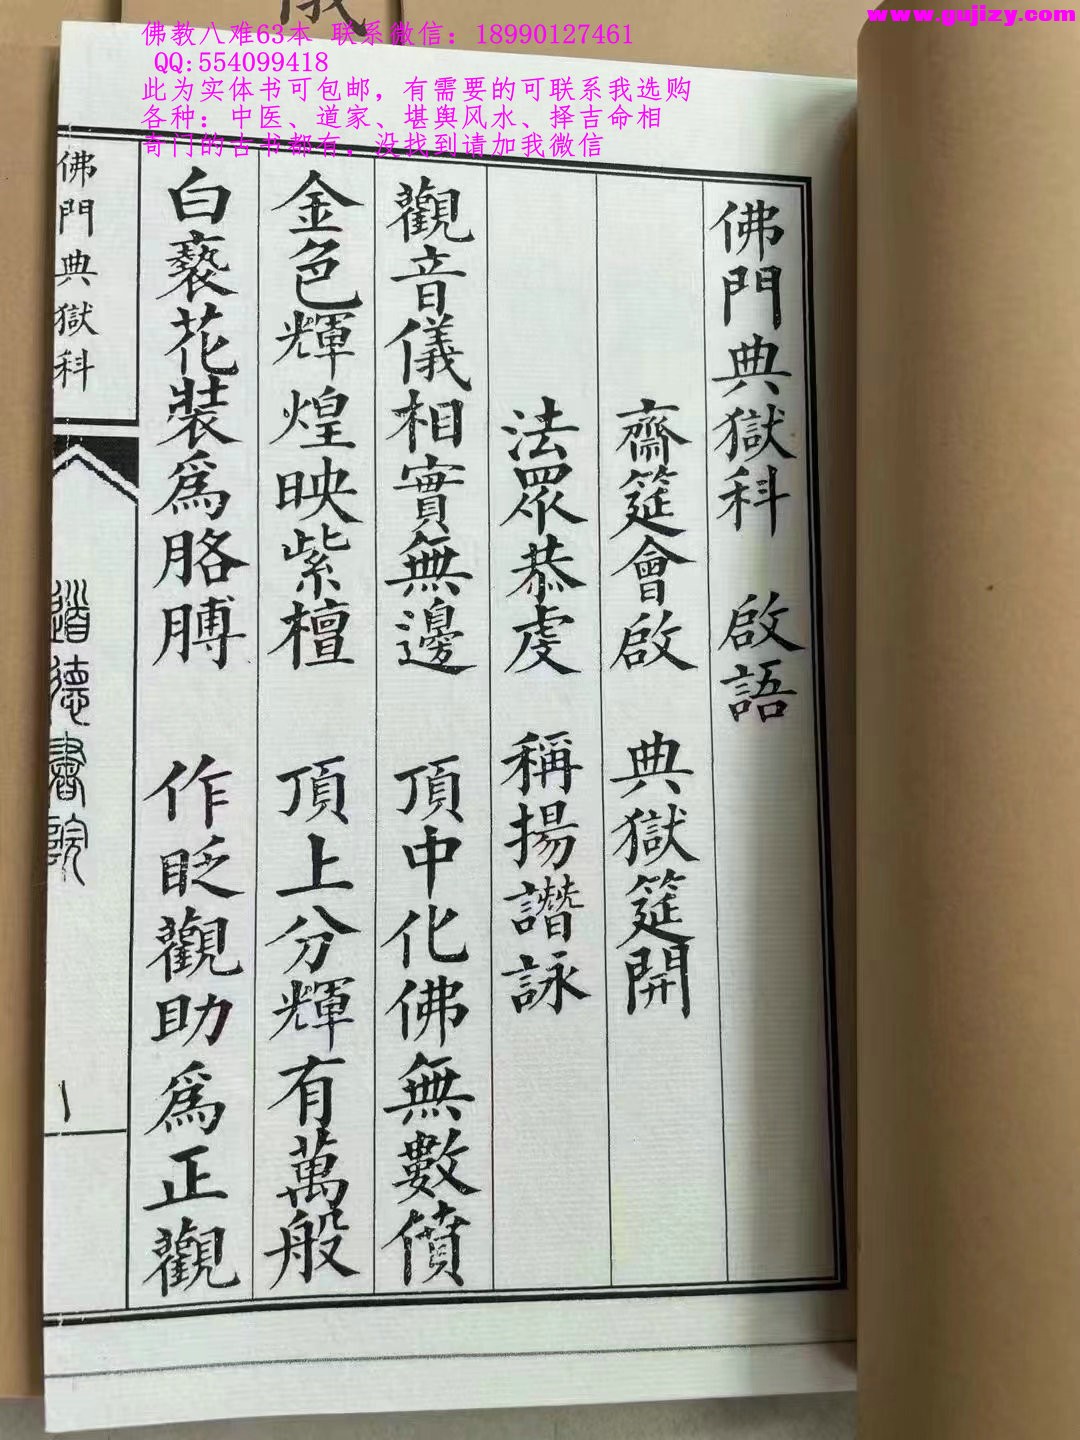 www.gujizy.com
佛教八难63本 联系微信：18990127461
QQ:554099418
此为实体书可包邮，有需要的可联系我选购
各种：中医、道家、堪舆风水、择吉命相
奇门的古书都有，没找到请加我微信
佛門典獄科 啟語
齋筵會啟 典獄筵開
法眾恭虔 稱揚讚詠
觀音儀相實無邊 頂中化佛無數僨
金色輝煌映紫檀 頂上分輝有萬般
白褻花裝為胳膊 作眨觀助為正觀
佛門典獄科
道德書院
一